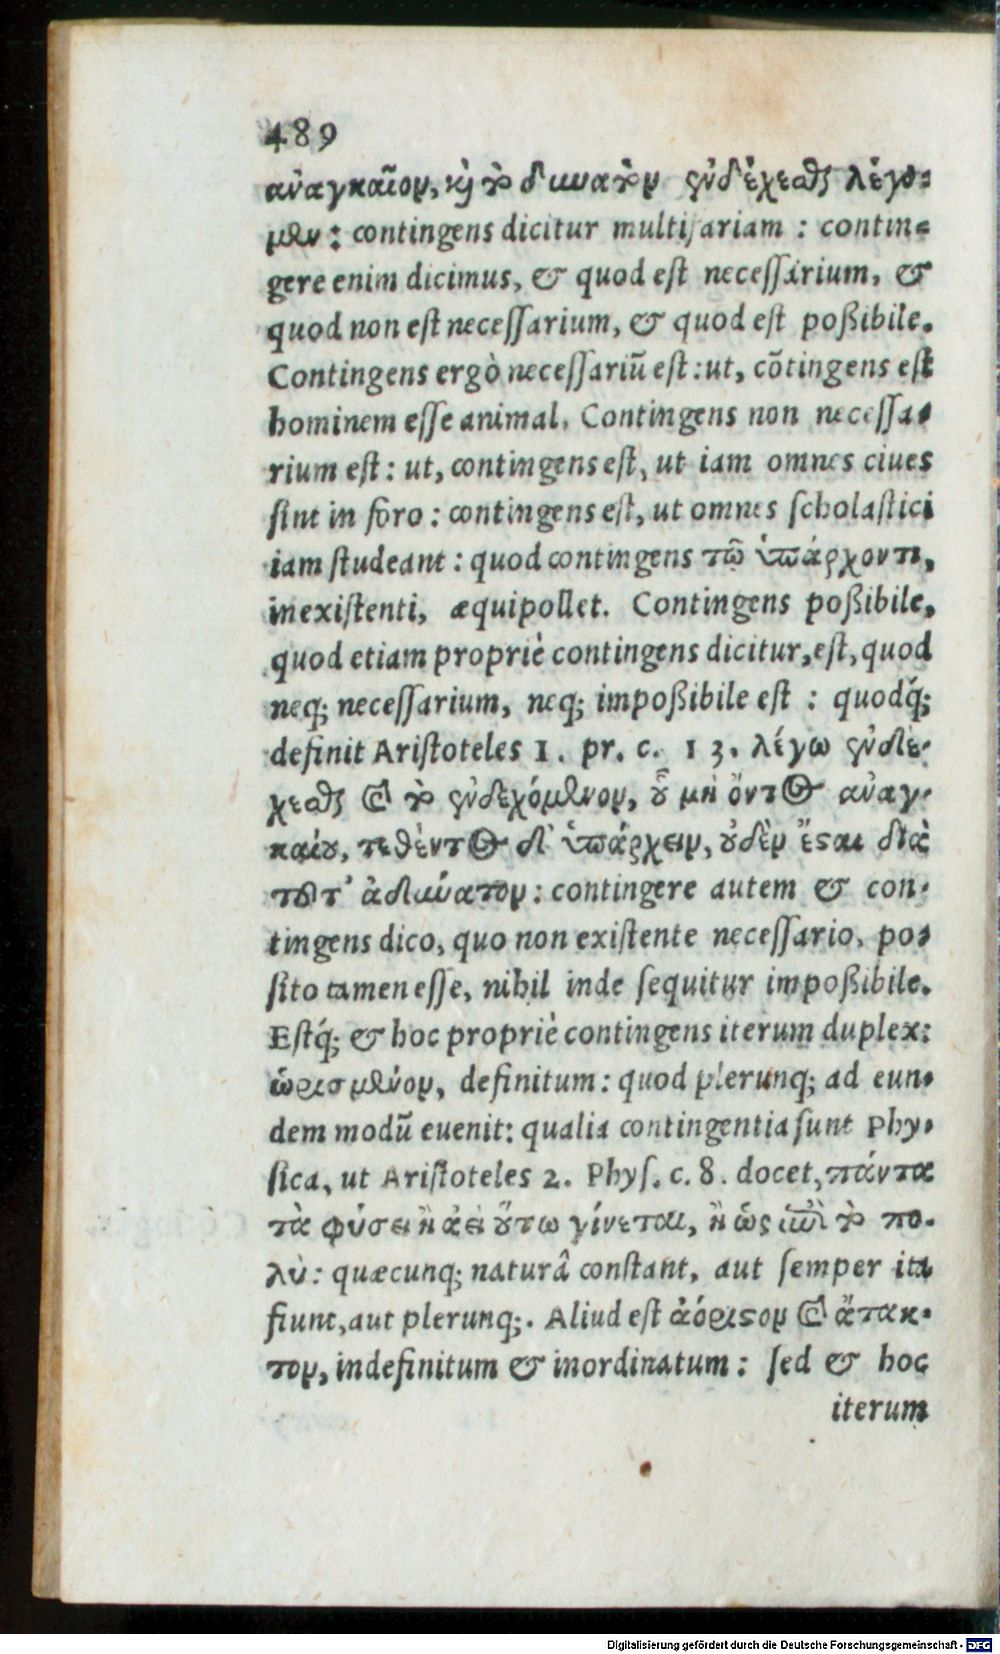 489
ἀναγκαῖον, καὶ τὸ δυνατὸν ἐνδέχεσθαι λέγο-
μεν: contingens dicitur multifariam : contin-
gere enim dicimus, & quod est necessarium, &
quod non est necessarium, & quod est poßibile.
Contingens ergò necessariũ est: ut, cõtingens est
hominem esse animal. Contingens non necessa-
rium est: ut, contingens est, ut iam omnes ciues
sint in foro: contingens est, ut omnes scholastici
iam studeant: quod contingens τῷ ὑπάρχοντι,
inexistenti, æquipollet. Contingens poßibile,
quod etiam propriè contingens dicitur, est, quod
neq; necessarium, neq; impoßibile est : quodq́;
definit Aristoteles 1. pr. c. 13. λέγω ἐνδέ-
χεσθαι καὶ τὸ ἐνδεχόμενον, οὗ μὴ ὄντος ἀναγ-
καίου, τεθέντος δ' ὑπάρχειν, οὐδὲν ἔσται διὰ
τοῦτ' ἀδύνατον: contingere autem & con-
tingens dico, quo non existente necessario, po-
sito tamen esse, nihil inde sequitur impoßibile.
Estq́; & hoc propriè contingens iterum duplex:
ὡρισμένον, definitum: quod plerunq; ad eun-
dem modũ euenit: qualia contingentia sunt Phy-
sica, ut Aristoteles 2. Phys. c. 8. docet, πάντα
τὰ φύσει ἢ ἀεὶ οὕτω γίνεται, ἢ ὡς ἐπὶ τὸ πο-
λύ: quæcunq; naturâ constant, aut semper ita
fiunt, aut plerunq;. Aliud est ἀόριστον καὶ ἄτακ-
τον, indefinitum & inordinatum: sed & hoc
iterum
Digitalisierung gefördert durch die Deutsche Forschungsgemeinschaft - DFG